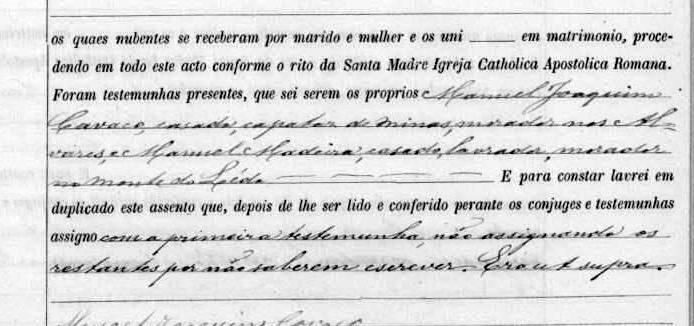 os quaes nubentes se receberam por marido e mulher e os uni em matrimonio, proce-
dendo em todo este acto conforme o rito da Santa Madre Igreja Catholica Apostolica Romana.
Foram testemunhas presentes, que sei serem os proprios Manuel Joaquim
Cavaco, casado, capataz de minas, morador nos Al-
vares, e Manuel Madeira, casado, lavrador, morador
no monte do E para constar lavrei em
duplicado este assento que, depois de lhe ser lido e conferido perante os conjuges e testemunhas
assigno com a primeira testemunha, não assignando os
restantes por não saberem escrever. Era ut supra.
Manuel Joaquim Cavaco